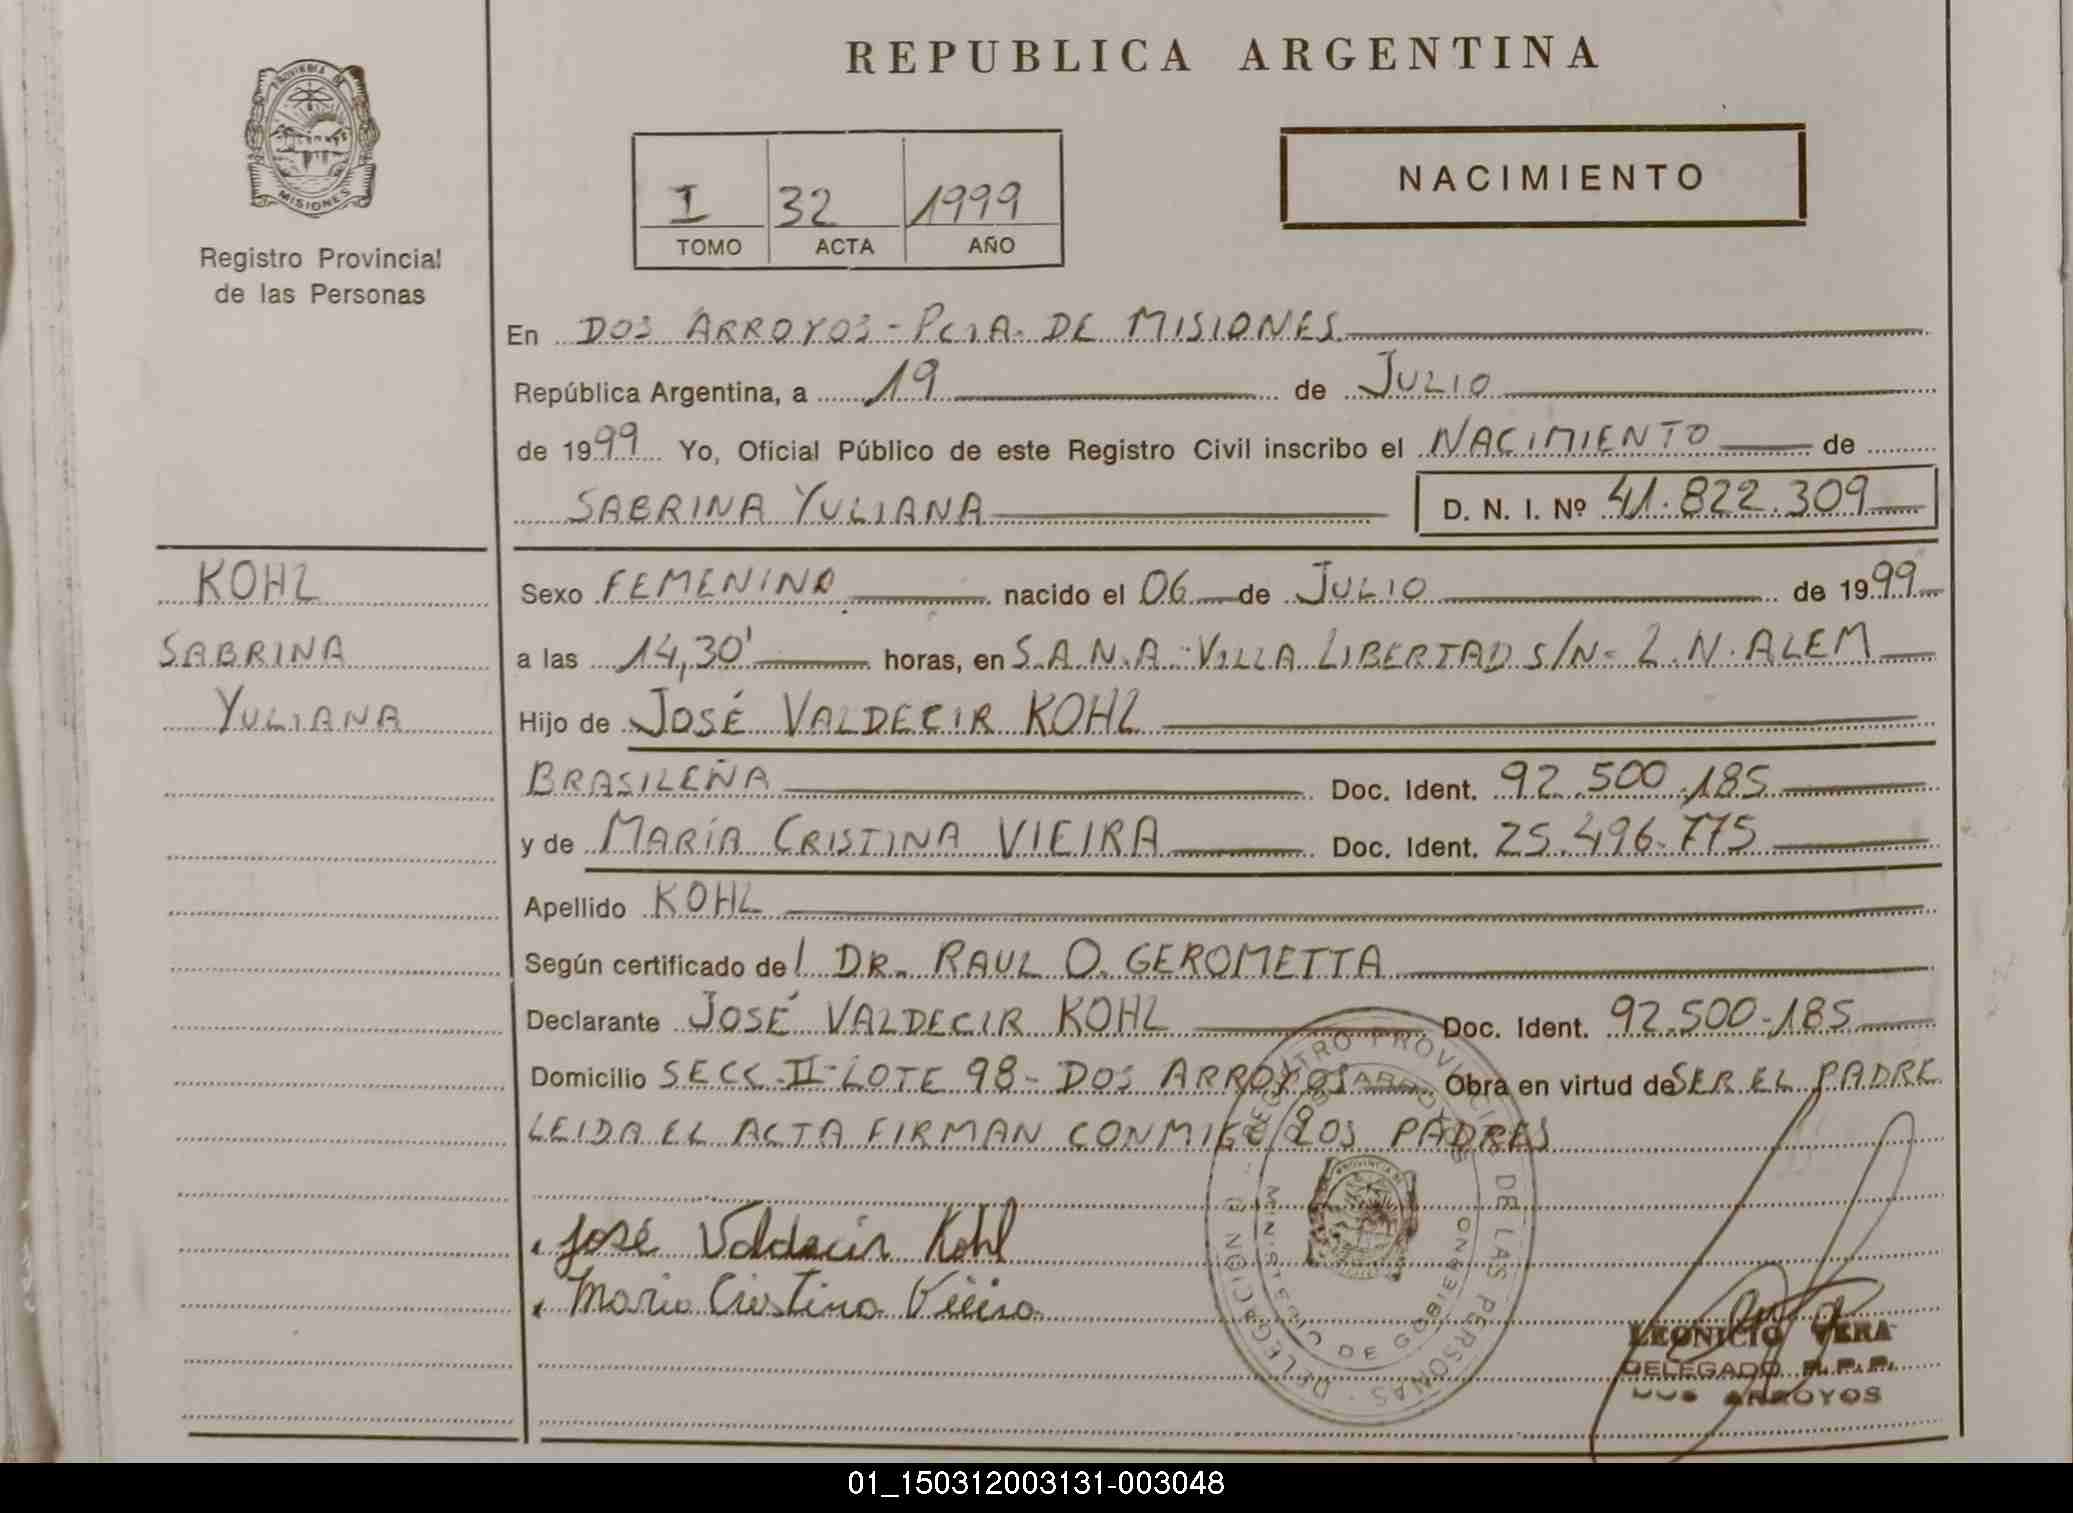 REPUBLICA ARGENTINA
PROVINCIA DE
MISIONES
Registro Provincial
de las Personas
I 32 1999
TOMO ACTA AÑO
NACIMIENTO
En DOS ARROYOS - PCIA. DE MISIONES
República Argentina, a 19 de JULIO
de 1999 Yo, Oficial Público de este Registro Civil inscribo el NACIMIENTO de
SABRINA YULIANA D. N. I. Nº 41.822.309
KOHL
SABRINA
YULIANA
Sexo FEMENINO nacido el 06 de JULIO de 1999
a las 14,30' horas, en S.A.N.A. - VILLA LIBERTAD S/N - L.N. ALEM
Hijo de JOSÉ VALDECIR KOHL
BRASILEÑA Doc. Ident. 92.500.185
y de MARÍA CRISTINA VIEIRA Doc. Ident. 25.496.775
Apellido KOHL
Según certificado del DR. RAUL O. GEROMETTA
Declarante JOSÉ VALDECIR KOHL Doc. Ident. 92.500.185
Domicilio SECC. II - LOTE 98 - DOS ARROYOS Obra en virtud de SER EL PADRE
LEIDA EL ACTA FIRMAN CONMIGO LOS PADRES
José Valdecir Kohl
Maria Cristina Vieira
REGISTRO PROVINCIAL DE LAS PERSONAS - DELEGACION
DOS ARROYOS
MINISTERIO DE GOBIERNO
LEONICIO VERA
DELEGADO R.P.P.
DOS ARROYOS
01_150312003131-003048